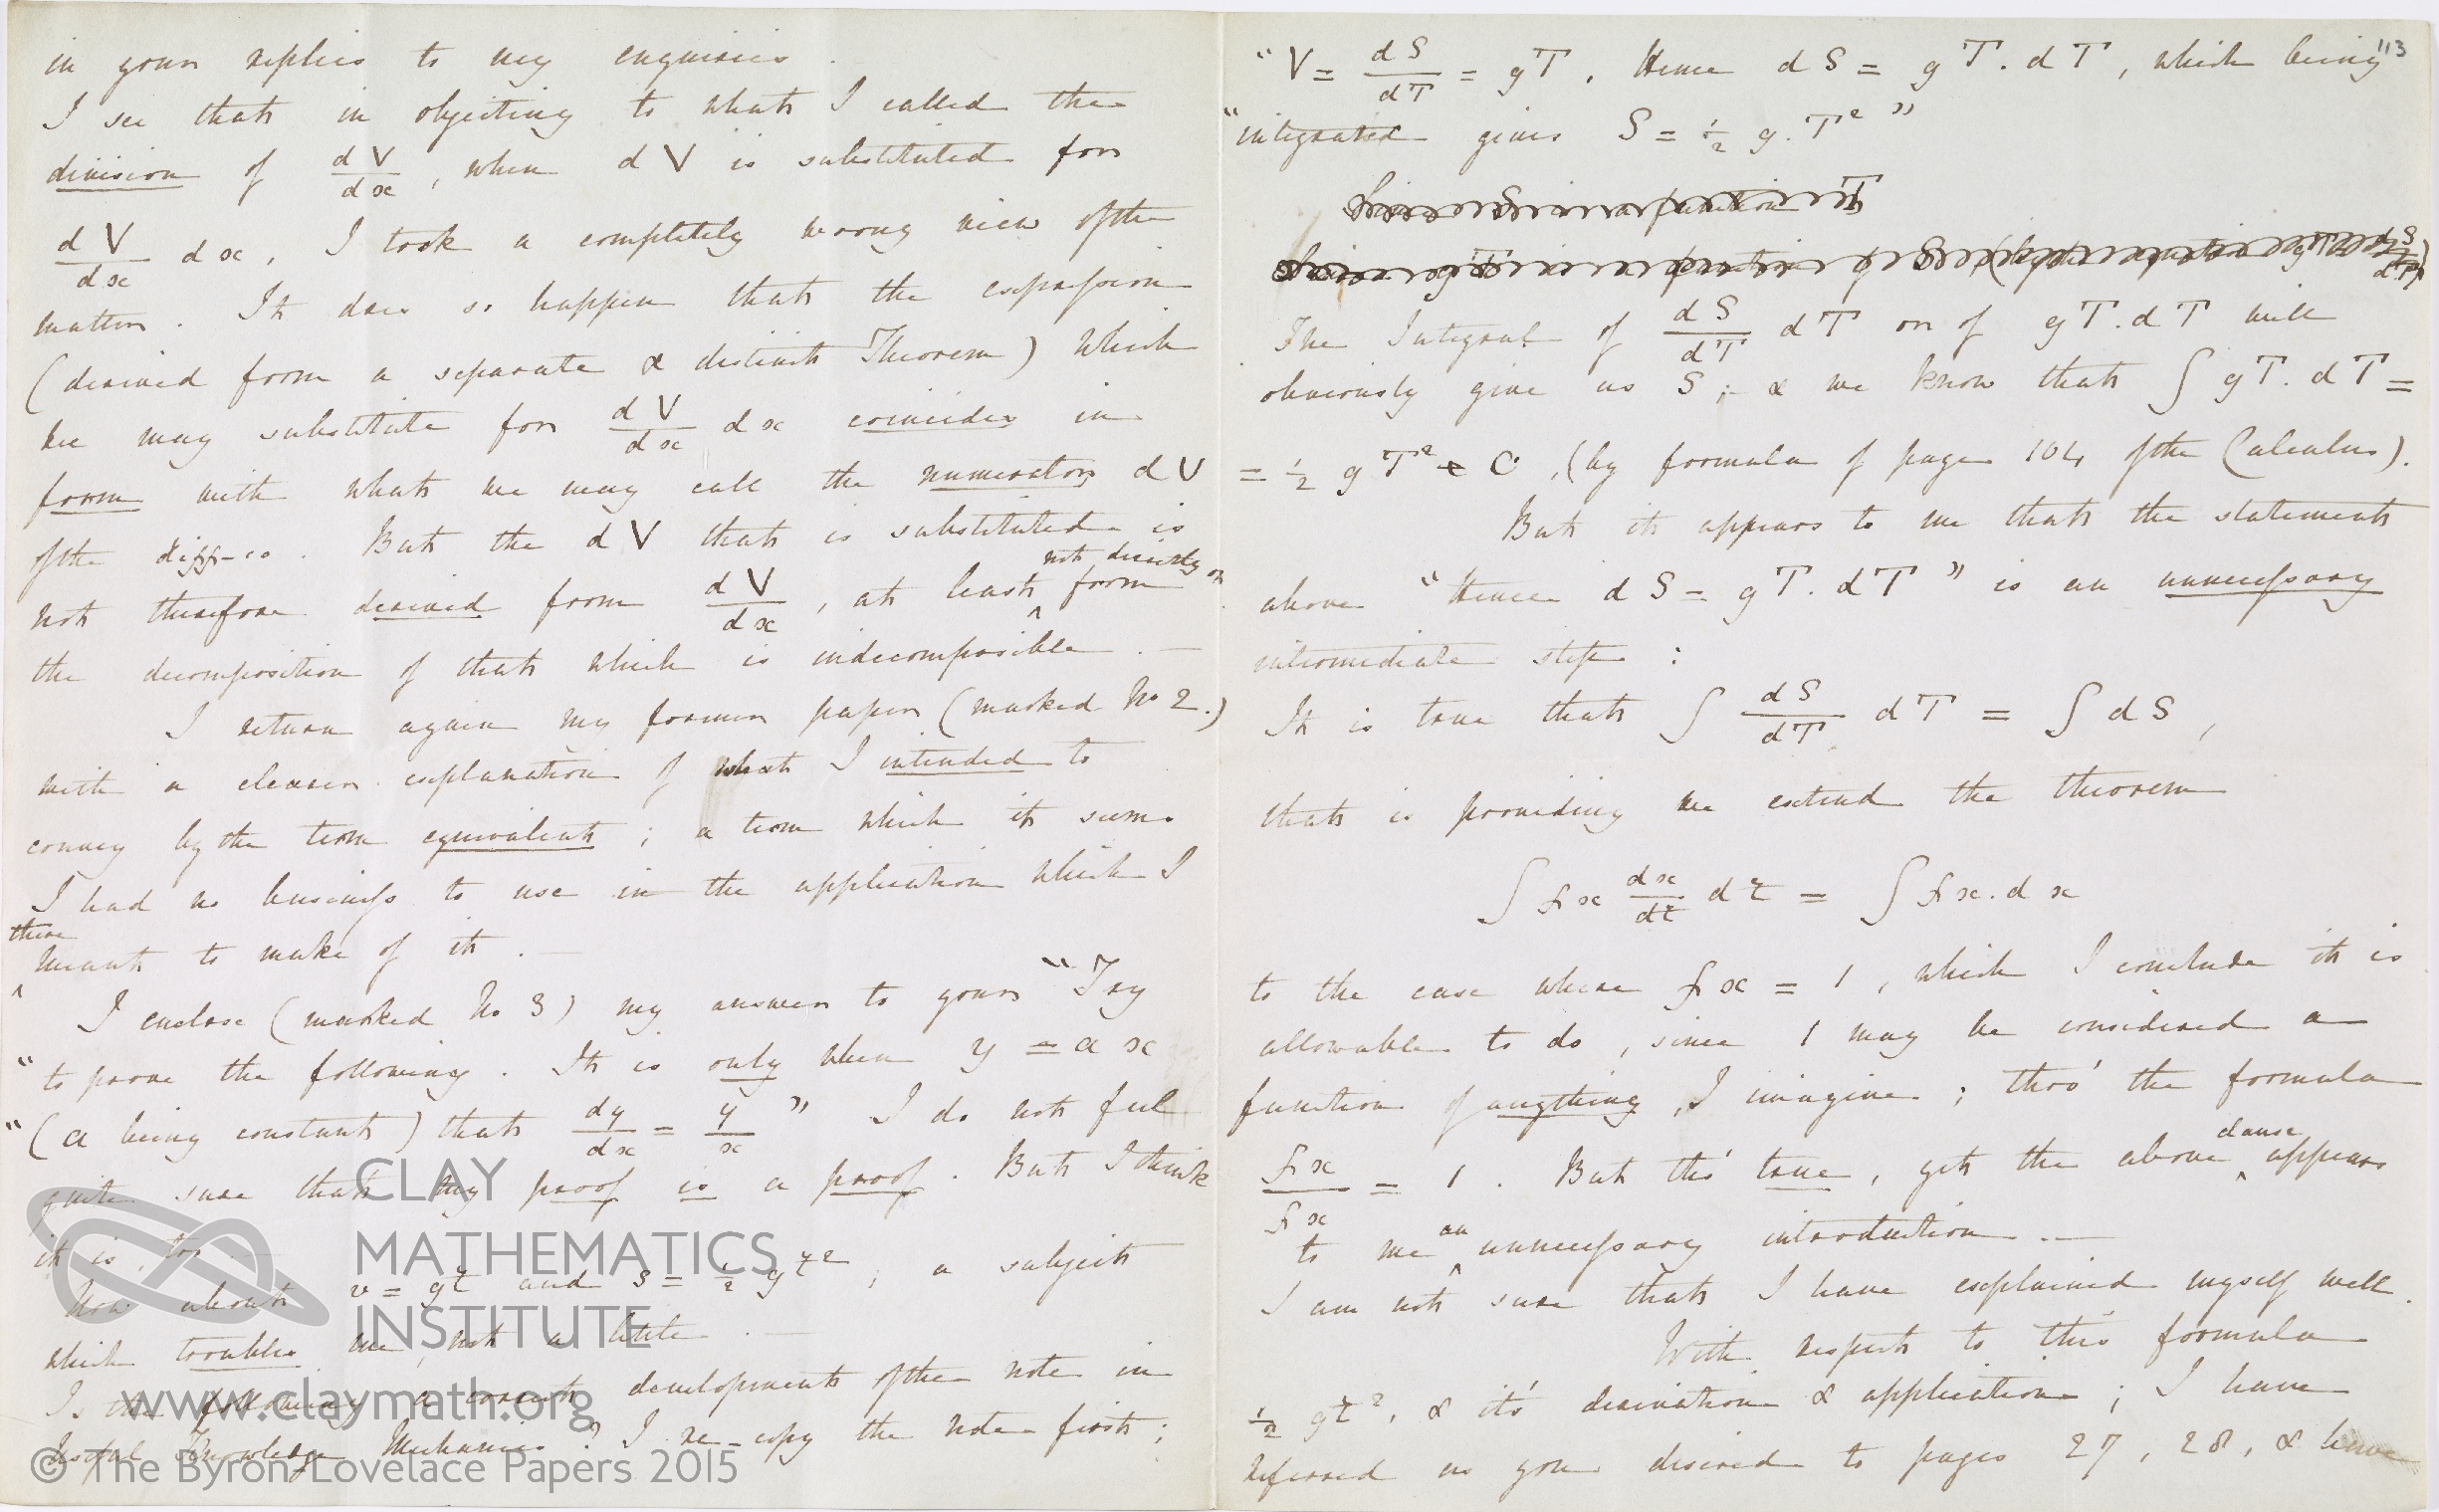 in your replies to my enquiries.
I see that in objecting to what I called the
division of dV/dx, when dV is substituted for
dV/dx dx, I took a completely wrong view of the
matter. It does so happen that the expression
(derived from a separate & distinct Theorem) which
we may substitute for dV/dx dx coincides in
form with what we may call the numerator dV
of the diff-co. But the dV that is substituted is
not therefore derived from dV/dx, at least not directly or from
the decomposition of that which is indecomposible. —
I return again my former paper (marked No 2.)
with a clearer explanation of what I intended to
convey by the term equivalent; a term which it seems
I had no business to use in the application which I
there meant to make of it. —
I enclose (marked No 3) my answer to your "Try
"to prove the following. It is only when y = ax
"(a being constant) that dy/dx = y/x" I do not feel
quite sure that my proof is a proof. But I think
it is, too. —
Now about v = gt and s = ½ gt²; a subject
which troubles me not a little. —
Is the following a correct development of the note in
Useful Knowledge Mechanics? I re-copy the note first;
113
"V = dS/dT = gT. Hence dS = gT.dT, which being
"integrated gives S = ½ g.T²"
The Integral of dS/dT dT or of gT.dT will
obviously give us S; & we know that ∫ gT.dT =
= ½ gT² + C, (by formula of page 104 of the Calculus).
But it appears to me that the statement
above "Hence dS = gT.dT" is an unnecessary
intermediate step:
It is true that ∫ dS/dT dT = ∫ dS,
that is providing we extend the theorem
∫ fx dx/dt dt = ∫ fx.dx
to the case where fx = 1, which I conclude it is
allowable to do, since 1 may be considered a
function of anything, I imagine; thro' the formula
fx/fx = 1. But tho' true, yet the above clause appears
to me an unnecessary introduction. —
I am not sure that I have explained myself well.
With respect to this formula
½ gt², & it's derivation & application; I have
referred as you desired to pages 27, 28, & have
CLAY
MATHEMATICS
INSTITUTE
www.claymath.org
© The Byron-Lovelace Papers 2015